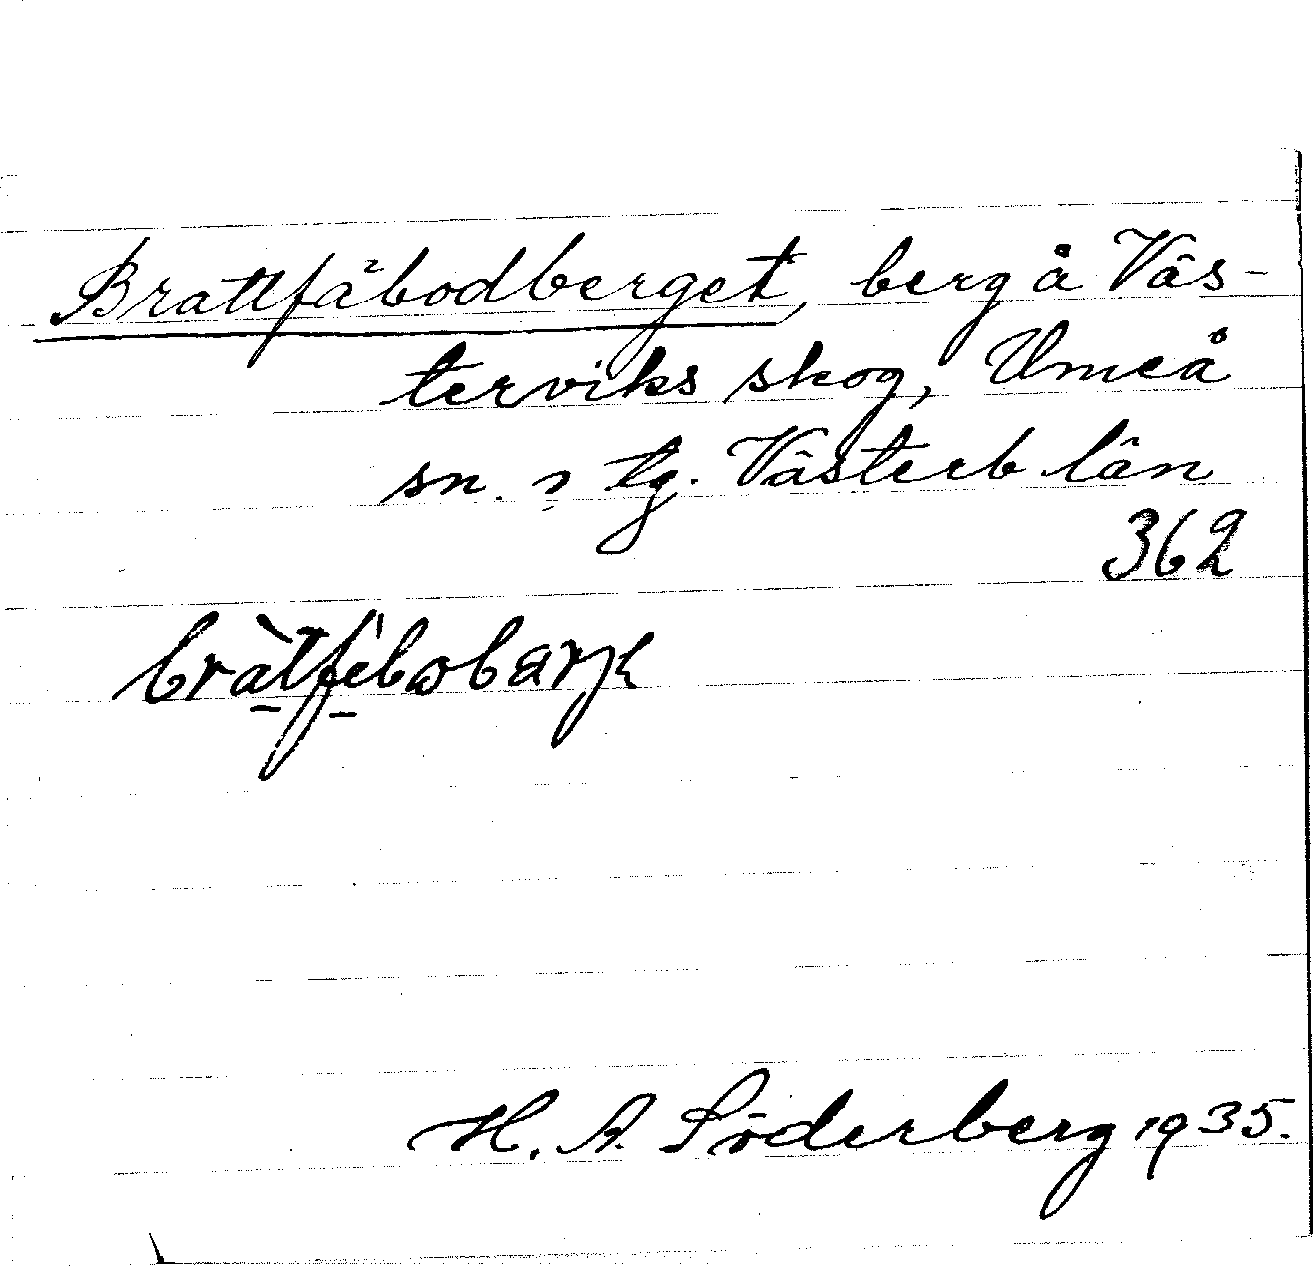 Brattfäbodberget, berg å Väs-
terviks skog, Umeå
sn. o tg. Västerb län
362
H. A. Söderberg 1935.